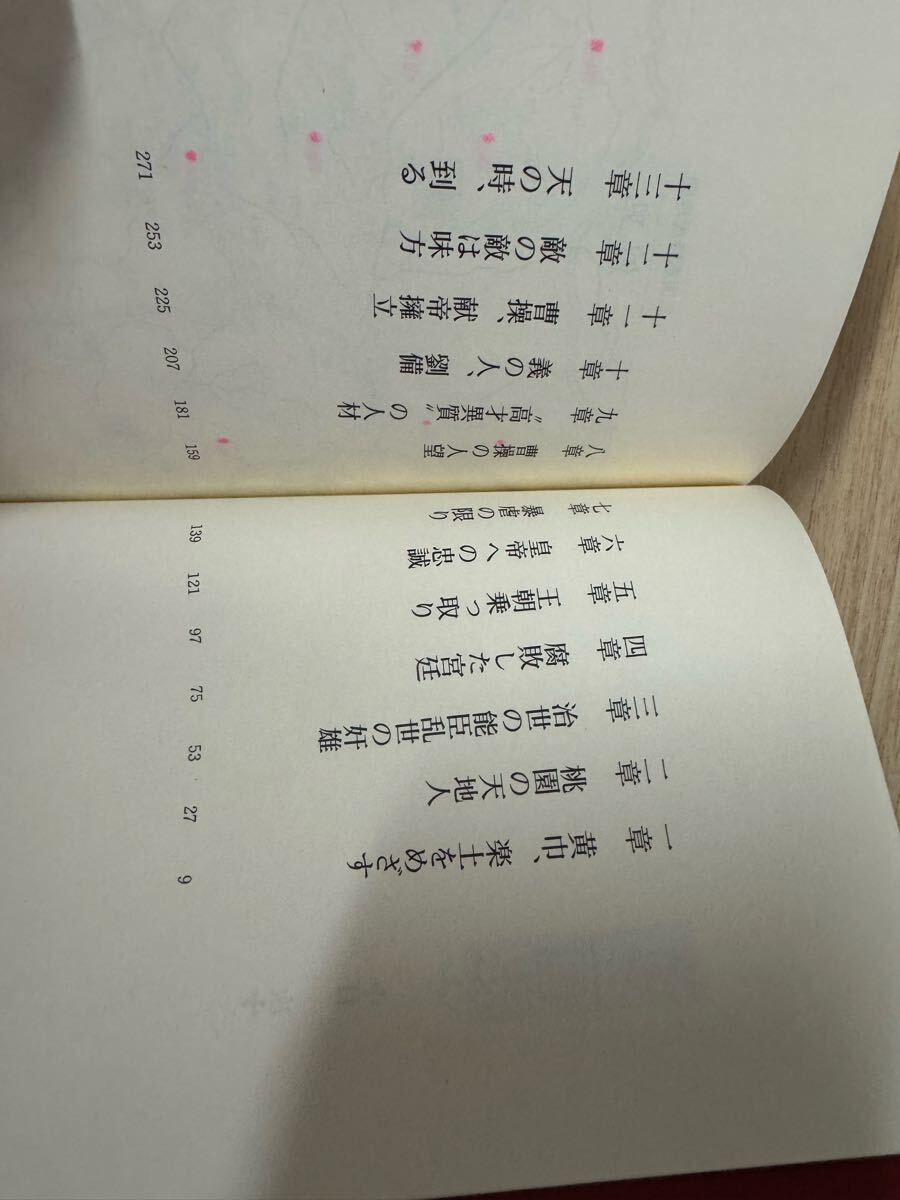 一章 黄巾、楽土をめざす 9
二章 桃園の天地人 27
三章 治世の能臣乱世の奸雄 53
四章 腐敗した宮廷 75
五章 王朝乗っ取り 97
六章 皇帝への忠誠 121
七章 暴虐の限り 139
八章 曹操の人望 159
九章 〝高才異質〟の人材 181
十章 義の人、劉備 207
十一章 曹操、献帝擁立 225
十二章 敵の敵は味方 253
十三章 天の時、到る 271